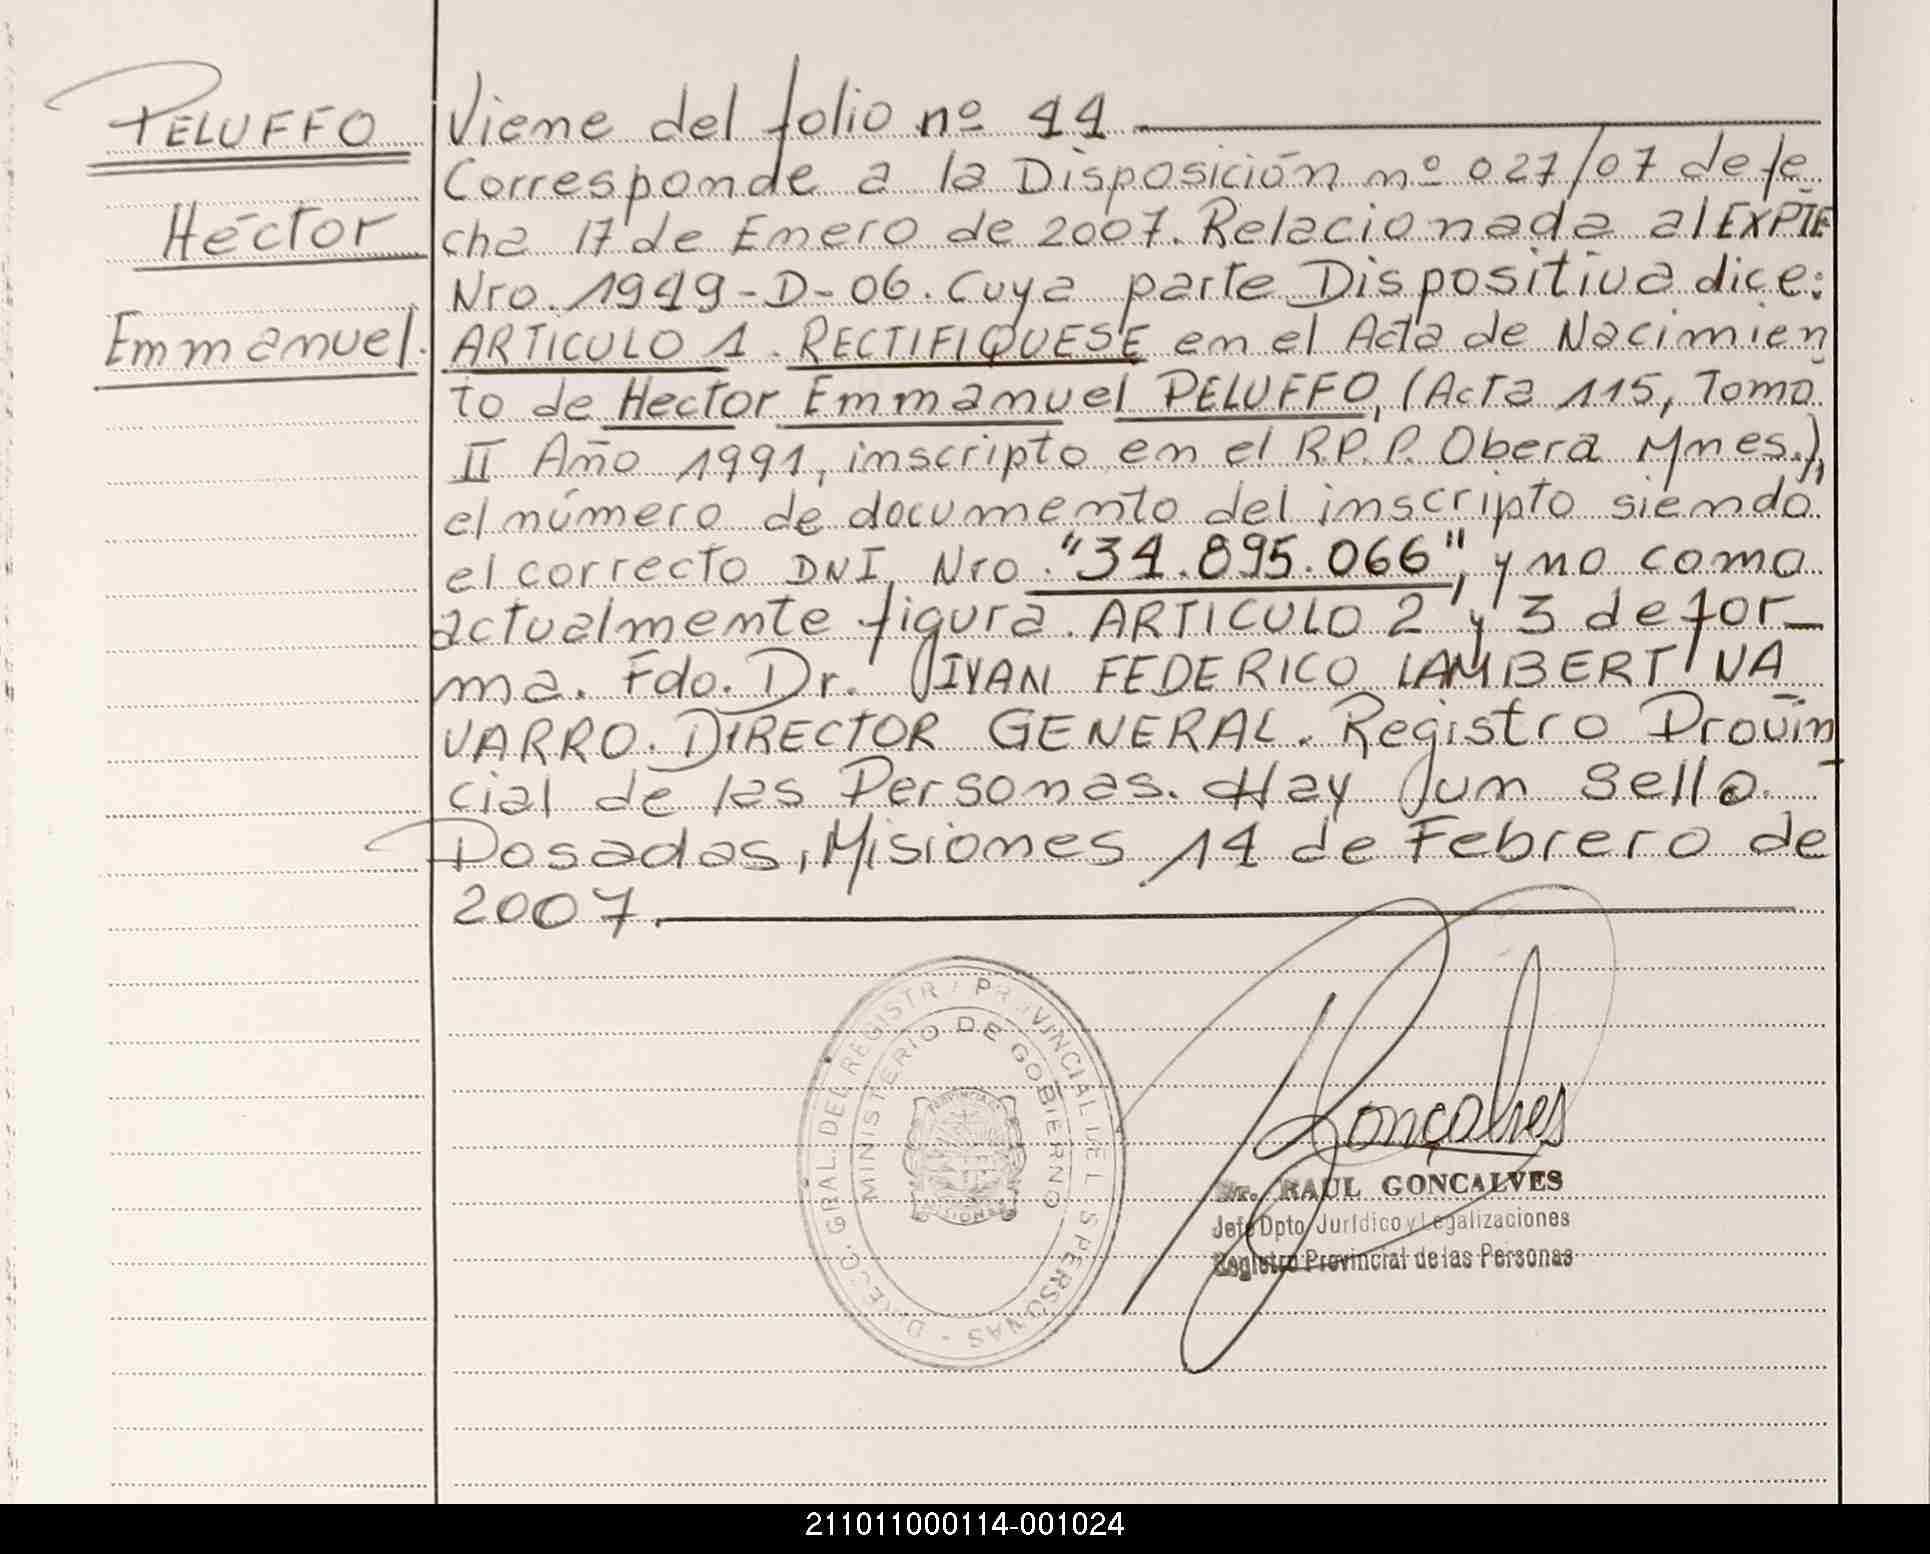 PELUFFO
Héctor
Emmanuel.
Viene del folio nº 44
Corresponde a la Disposición nº 027/07 de fe
cha 17 de Enero de 2007. Relacionada al EXPTE
Nro. 1949-D-06. Cuya parte Dispositiva dice:
ARTICULO 1. RECTIFIQUESE en el Acta de Nacimien
to de Hector Emmanuel PELUFFO, (Acta 115, Tomo
II Año 1991, inscripto en el R.P.P. Obera Mnes.),
el número de documento del inscripto siendo
el correcto DNI Nro. "34.895.066", y no como
actualmente figura. ARTICULO 2 y 3 de for-
ma. Fdo. Dr. IVAN FEDERICO LAMBERT NA
VARRO. DIRECTOR GENERAL. Registro Provin
cial de las Personas. Hay un sello.-
Posadas, Misiones 14 de Febrero de
2007.
DIREC. GRAL. DEL REGISTRO PROVINCIAL DE LAS PERSONAS -
MINISTERIO DE GOBIERNO
PROVINCIA DE
MISIONES
Goncalves
Dr. RAUL GONCALVES
Jefe Dpto. Jurídico y Legalizaciones
Registro Provincial de las Personas
211011000114-001024